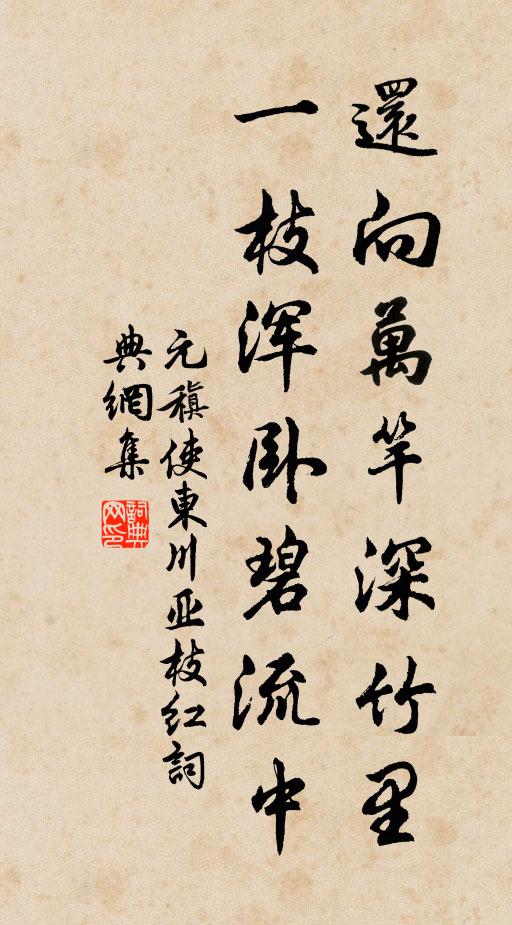 還向萬竿深竹里
一枝浑卧碧流中
元稹使東川亚枝红詞
典網集
詞典网印